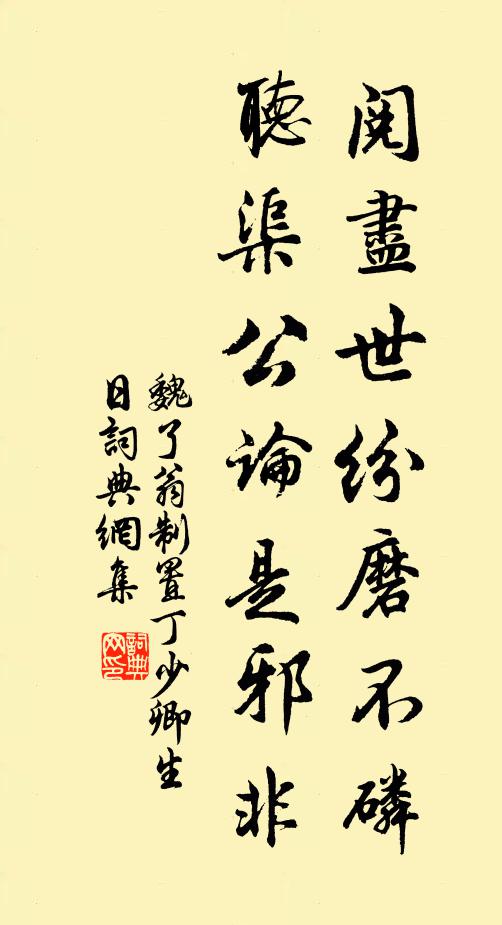 閱盡世紛磨不磷
聽渠公論是邪非
魏了翁制置丁少卿生
日詞典網集
詞典网印